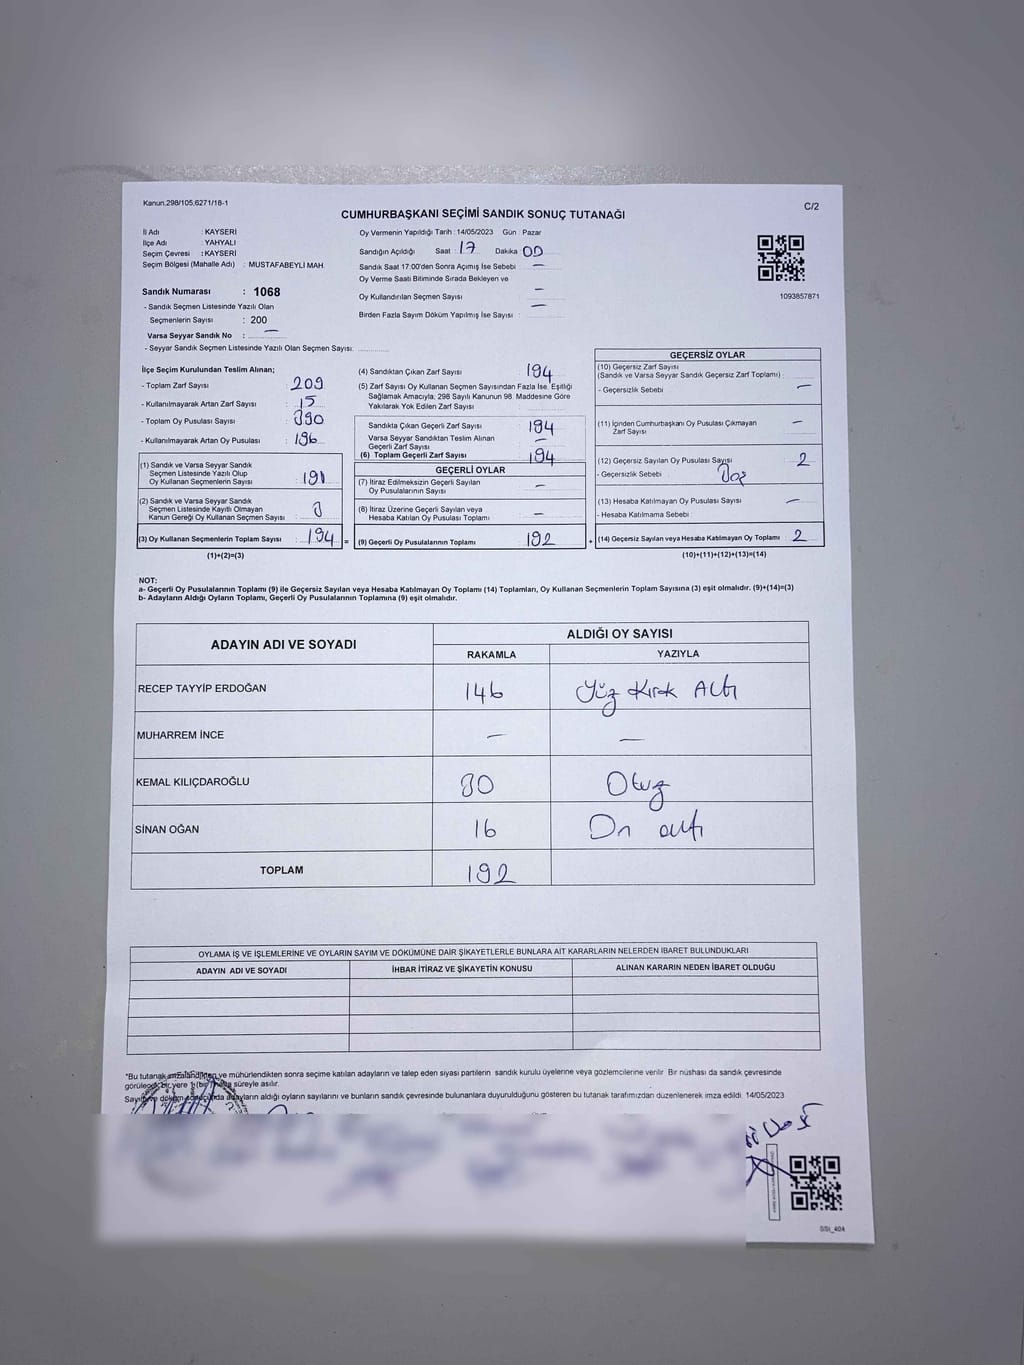 Kanun.298/105,6271/18-1
C/2
CUMHURBAŞKANI SEÇİMİ SANDIK SONUÇ TUTANAĞI
İl Adı : KAYSERİ
İlçe Adı : YAHYALI
Seçim Çevresi : KAYSERİ
Seçim Bölgesi (Mahalle Adı) : MUSTAFABEYLİ MAH.
Sandık Numarası : 1068
- Sandık Seçmen Listesinde Yazılı Olan
Seçmenlerin Sayısı : 200
Varsa Seyyar Sandık No : —
- Seyyar Sandık Seçmen Listesinde Yazılı Olan Seçmen Sayısı:
Oy Vermenin Yapıldığı Tarih : 14/05/2023 Gün : Pazar
Sandığın Açıldığı Saat : 17 Dakika : 00
Sandık Saat 17:00'den Sonra Açımış İse Sebebi : —
Oy Verme Saati Bitiminde Sırada Bekleyen ve
Oy Kullandırılan Seçmen Sayısı : —
Birden Fazla Sayım Döküm Yapılmış İse Sayısı : —
1093857871
İlçe Seçim Kurulundan Teslim Alınan;
- Toplam Zarf Sayısı : 209
- Kullanılmayarak Artan Zarf Sayısı : 15
- Toplam Oy Pusulası Sayısı : 390
- Kullanılmayarak Artan Oy Pusulası : 196
(1) Sandık ve Varsa Seyyar Sandık
Seçmen Listesinde Yazılı Olup
Oy Kullanan Seçmenlerin Sayısı : 191
(2) Sandık ve Varsa Seyyar Sandık
Seçmen Listesinde Kayıtlı Olmayan
Kanun Gereği Oy Kullanan Seçmen Sayısı : 3
(3) Oy Kullanan Seçmenlerin Toplam Sayısı : 194 =
(1)+(2)=(3)
(4) Sandıktan Çıkan Zarf Sayısı : 194
(5) Zarf Sayısı Oy Kullanan Seçmen Sayısından Fazla İse, Eşitliği
Sağlamak Amacıyla, 298 Sayılı Kanunun 98. Maddesine Göre
Yakılarak Yok Edilen Zarf Sayısı :
Sandıkta Çıkan Geçerli Zarf Sayısı : 194
Varsa Seyyar Sandıktan Teslim Alınan
Geçerli Zarf Sayısı : —
(6) Toplam Geçerli Zarf Sayısı : 194
GEÇERLİ OYLAR
(7) İtiraz Edilmeksizin Geçerli Sayılan
Oy Pusulalarının Sayısı : —
(8) İtiraz Üzerine Geçerli Sayılan veya
Hesaba Katılan Oy Pusulası Toplamı : —
(9) Geçerli Oy Pusulalarının Toplamı : 192 +
GEÇERSİZ OYLAR
(10) Geçersiz Zarf Sayısı
(Sandık ve Varsa Seyyar Sandık Geçersiz Zarf Toplamı) :
- Geçersizlik Sebebi : —
(11) İçinden Cumhurbaşkanı Oy Pusulası Çıkmayan
Zarf Sayısı : —
(12) Geçersiz Sayılan Oy Pusulası Sayısı : 2
- Geçersizlik Sebebi :
(13) Hesaba Katılmayan Oy Pusulası Sayısı : —
- Hesaba Katılmama Sebebi :
(14) Geçersiz Sayılan veya Hesaba Katılmayan Oy Toplamı : 2
(10)+(11)+(12)+(13)=(14)
NOT:
a- Geçerli Oy Pusulalarının Toplamı (9) ile Geçersiz Sayılan veya Hesaba Katılmayan Oy Toplamı (14) Toplamları, Oy Kullanan Seçmenlerin Toplam Sayısına (3) eşit olmalıdır. (9)+(14)=(3)
b- Adayların Aldığı Oyların Toplamı, Geçerli Oy Pusulalarının Toplamına (9) eşit olmalıdır.
ADAYIN ADI VE SOYADI
ALDIĞI OY SAYISI
RAKAMLA YAZIYLA
RECEP TAYYİP ERDOĞAN 146 Yüz Kırk Altı
MUHARREM İNCE — —
KEMAL KILIÇDAROĞLU 30 Otuz
SİNAN OĞAN 16 On altı
TOPLAM 192
OYLAMA İŞ VE İŞLEMLERİNE VE OYLARIN SAYIM VE DÖKÜMÜNE DAİR ŞİKAYETLERLE BUNLARA AİT KARARLARIN NELERDEN İBARET BULUNDUKLARI
ADAYIN ADI VE SOYADI İHBAR İTİRAZ VE ŞİKAYETİN KONUSU ALINAN KARARIN NEDEN İBARET OLDUĞU
*Bu tutanak imzalandıktan ve mühürlendikten sonra seçime katılan adayların ve talep eden siyasi partilerin sandık kurulu üyelerine veya gözlemcilerine verilir. Bir nüshası da sandık çevresinde
görülecek bir yere 1(bir) hafta süreyle asılır.
Sayım ve döküm sonucunda adayların aldığı oyların sayılarını ve bunların sandık çevresinde bulunanlara duyurulduğunu gösteren bu tutanak tarafımızdan düzenlenerek imza edildi. 14/05/2023